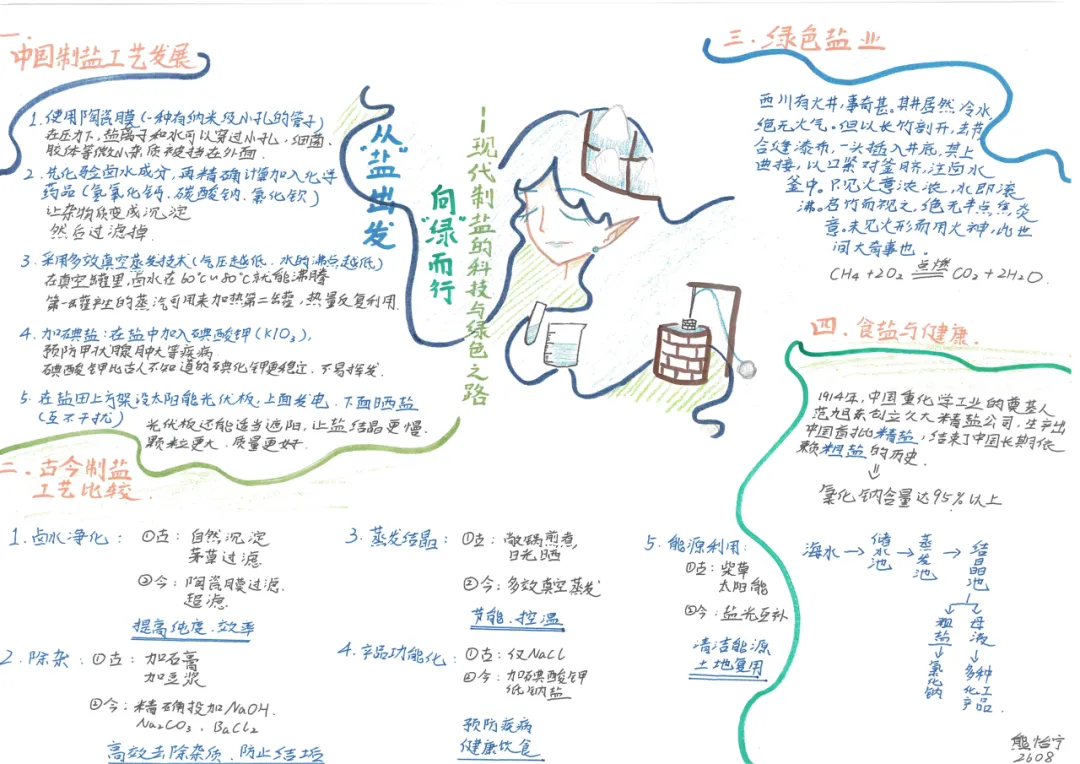 一.
中国制盐工艺发展
1. 使用陶瓷膜(一种有纳米级小孔的管子)
在压力下,盐离子和水可以穿过小孔,细菌、
胶体等微小杂质被挡在外面.
2. 先化验卤水成分,再精确计量加入化学
药品(氢氧化钙、碳酸钠、氯化钡)
让杂物质变成沉淀
然后过滤掉.
3. 采用多效真空蒸发技术(气压越低、水的沸点越低)
在真空罐里,卤水在60℃~80℃就能沸腾
第一罐产生的蒸汽可用来加热第二罐,热量反复利用.
4. 加碘盐:在盐中加入碘酸钾(KIO₃),
预防甲状腺肿大等疾病
碘酸钾比古人不知道的碘化钾更稳定、不易挥发.
5. 在盐田上方架设太阳能光伏板,上面发电、下面晒盐
(互不干扰)
光伏板还能适当遮阳,让盐结晶更慢.
颗粒更大、质量更好.
从"盐"出发
向"绿"而行
——现代制盐的科技与绿色之路
二.古今制盐
工艺比较
1.卤水净化:①古:自然沉淀
茅草过滤
②今:陶瓷膜过滤.
超滤.
提高纯度、效率
2.除杂:①古:加石膏
加豆浆
②今:精确投加NaOH、
Na₂CO₃、BaCl₂
高效去除杂质、防止结垢
3.蒸发结晶:①古:敞锅煎煮,
日光晒
②今:多效真空蒸发
节能、控温
4.产品功能化:①古:仅NaCl
②今:加碘酸钾
低钠盐
预防疾病
健康饮食
5.能源利用:
①古:柴草
太阳能
②今:盐光互补
清洁能源
土地复用
三.绿色盐业
西川有火井,事奇甚。其井居然冷水,
绝无火气。但以长竹剖开,去节
合缝漆布,一头插入井底,其上
曲接,以口紧对釜脐,注卤水
釜中。只见火意浓浓,水即滚
沸。启竹而视之,绝无半点焦炎
意。未见火形而用火神,此世
间大奇事也.
CH₄+2O₂ 点燃 CO₂+2H₂O
四.食盐与健康.
1914年,中国重化学工业的奠基人
范旭东创立久大精盐公司,生产出
中国首批精盐,结束了中国长期依
赖粗盐的历史.
⇓
氯化钠含量达95%以上
海水→储水池→蒸发池→结晶池
粗盐→氯化钠
母液→多种化工产品
熊怡宁
2608